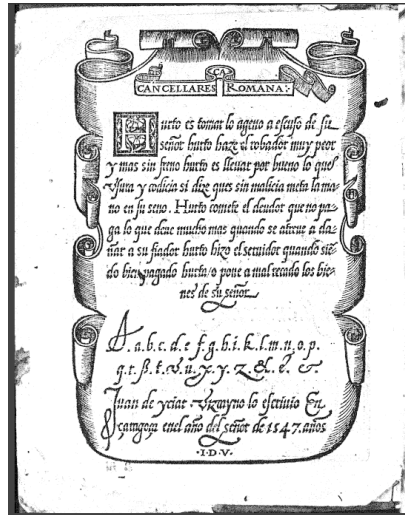 CANCELLARESCA ROMANA:·
Hurto es tomar lo ageno a escuso de su
señor hurto haze el robador muy peor
y mas sin freno hurto es lleuar por bueno lo que
Vsura y codicia si dize ques sin malicia meta la ma-
no en su seno. Hurto comete el deudor que no pa-
ga lo que deue mucho mas quando se atreue a da-
ñar a su fiador hurto hizo el seruidor quando siẽ-
do bien pagado hurta/o pone a mal recado los bie-
nes de su señor
A a.b.c.d.e f.g.h.i.k.l.m.n.o.p.
q.r.ß.t.v.u.x.y.z.&.
Juan de yciar Vizcayno lo escriuio En
çaragoça enel año del señor de 1547.años
·I·D·V·